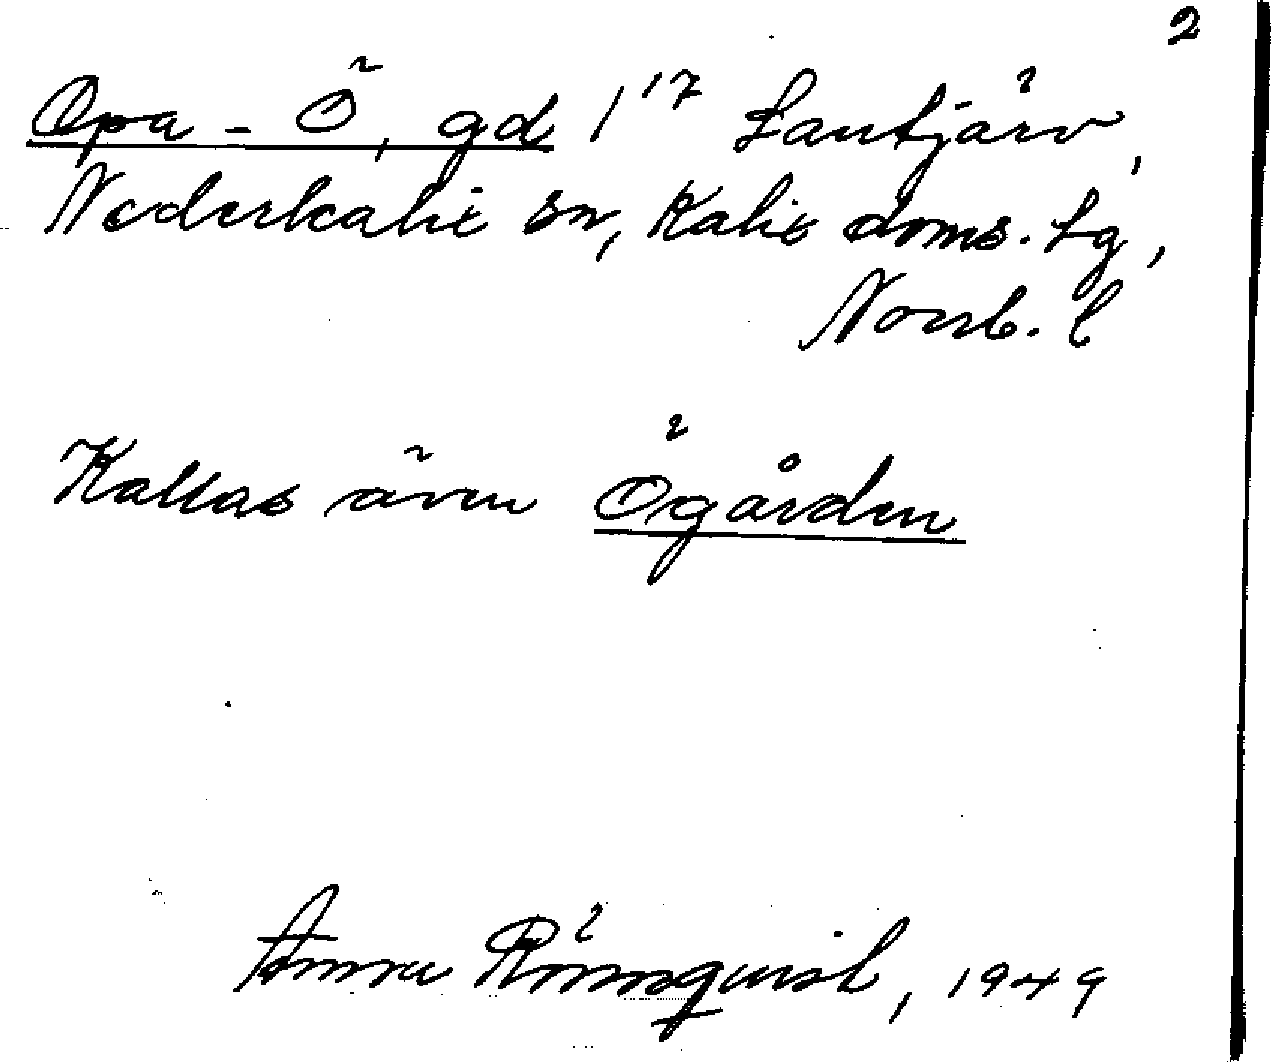 2
Opa - Ö, gd 1¹⁷ Lantjärv,
Nederkalix sn, Kalix doms. tg,
Norrb. l
Kallas även Ögården
Anna Rönnquist, 1949